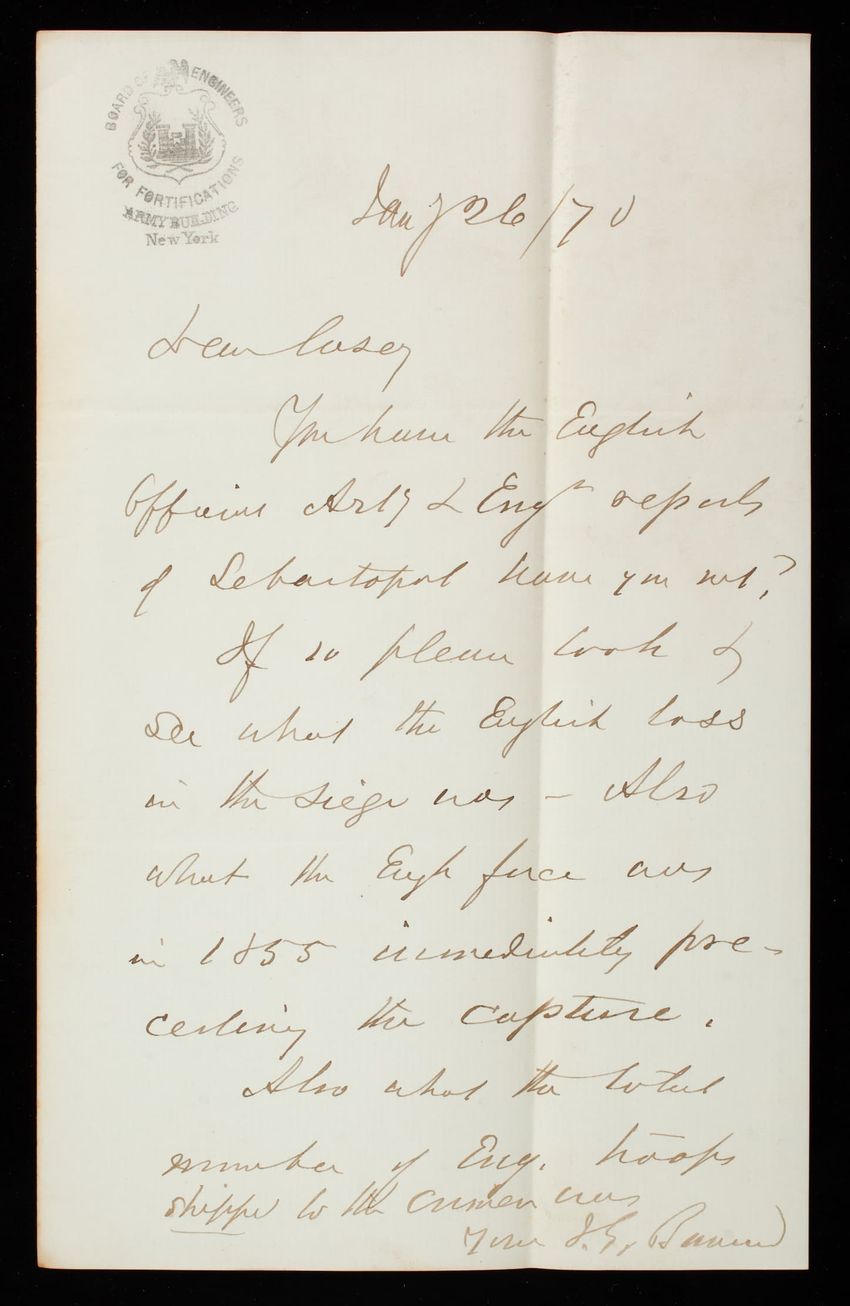 BOARD OF ENGINEERS
FOR FORTIFICATIONS
ARMY BUILDING
New York
Jany 26/70
Dear Casey
You have the English
Official Arty & Engr reports
of Sebastopol have you not?
If so please look &
see what the English loss
in the siege was – Also
what the Engh force was
in 1855 immediately pre-
ceding the capture.
Also what the total
number of Eng. troops
shipped to the Crimea was
Yours J. G. Barnard